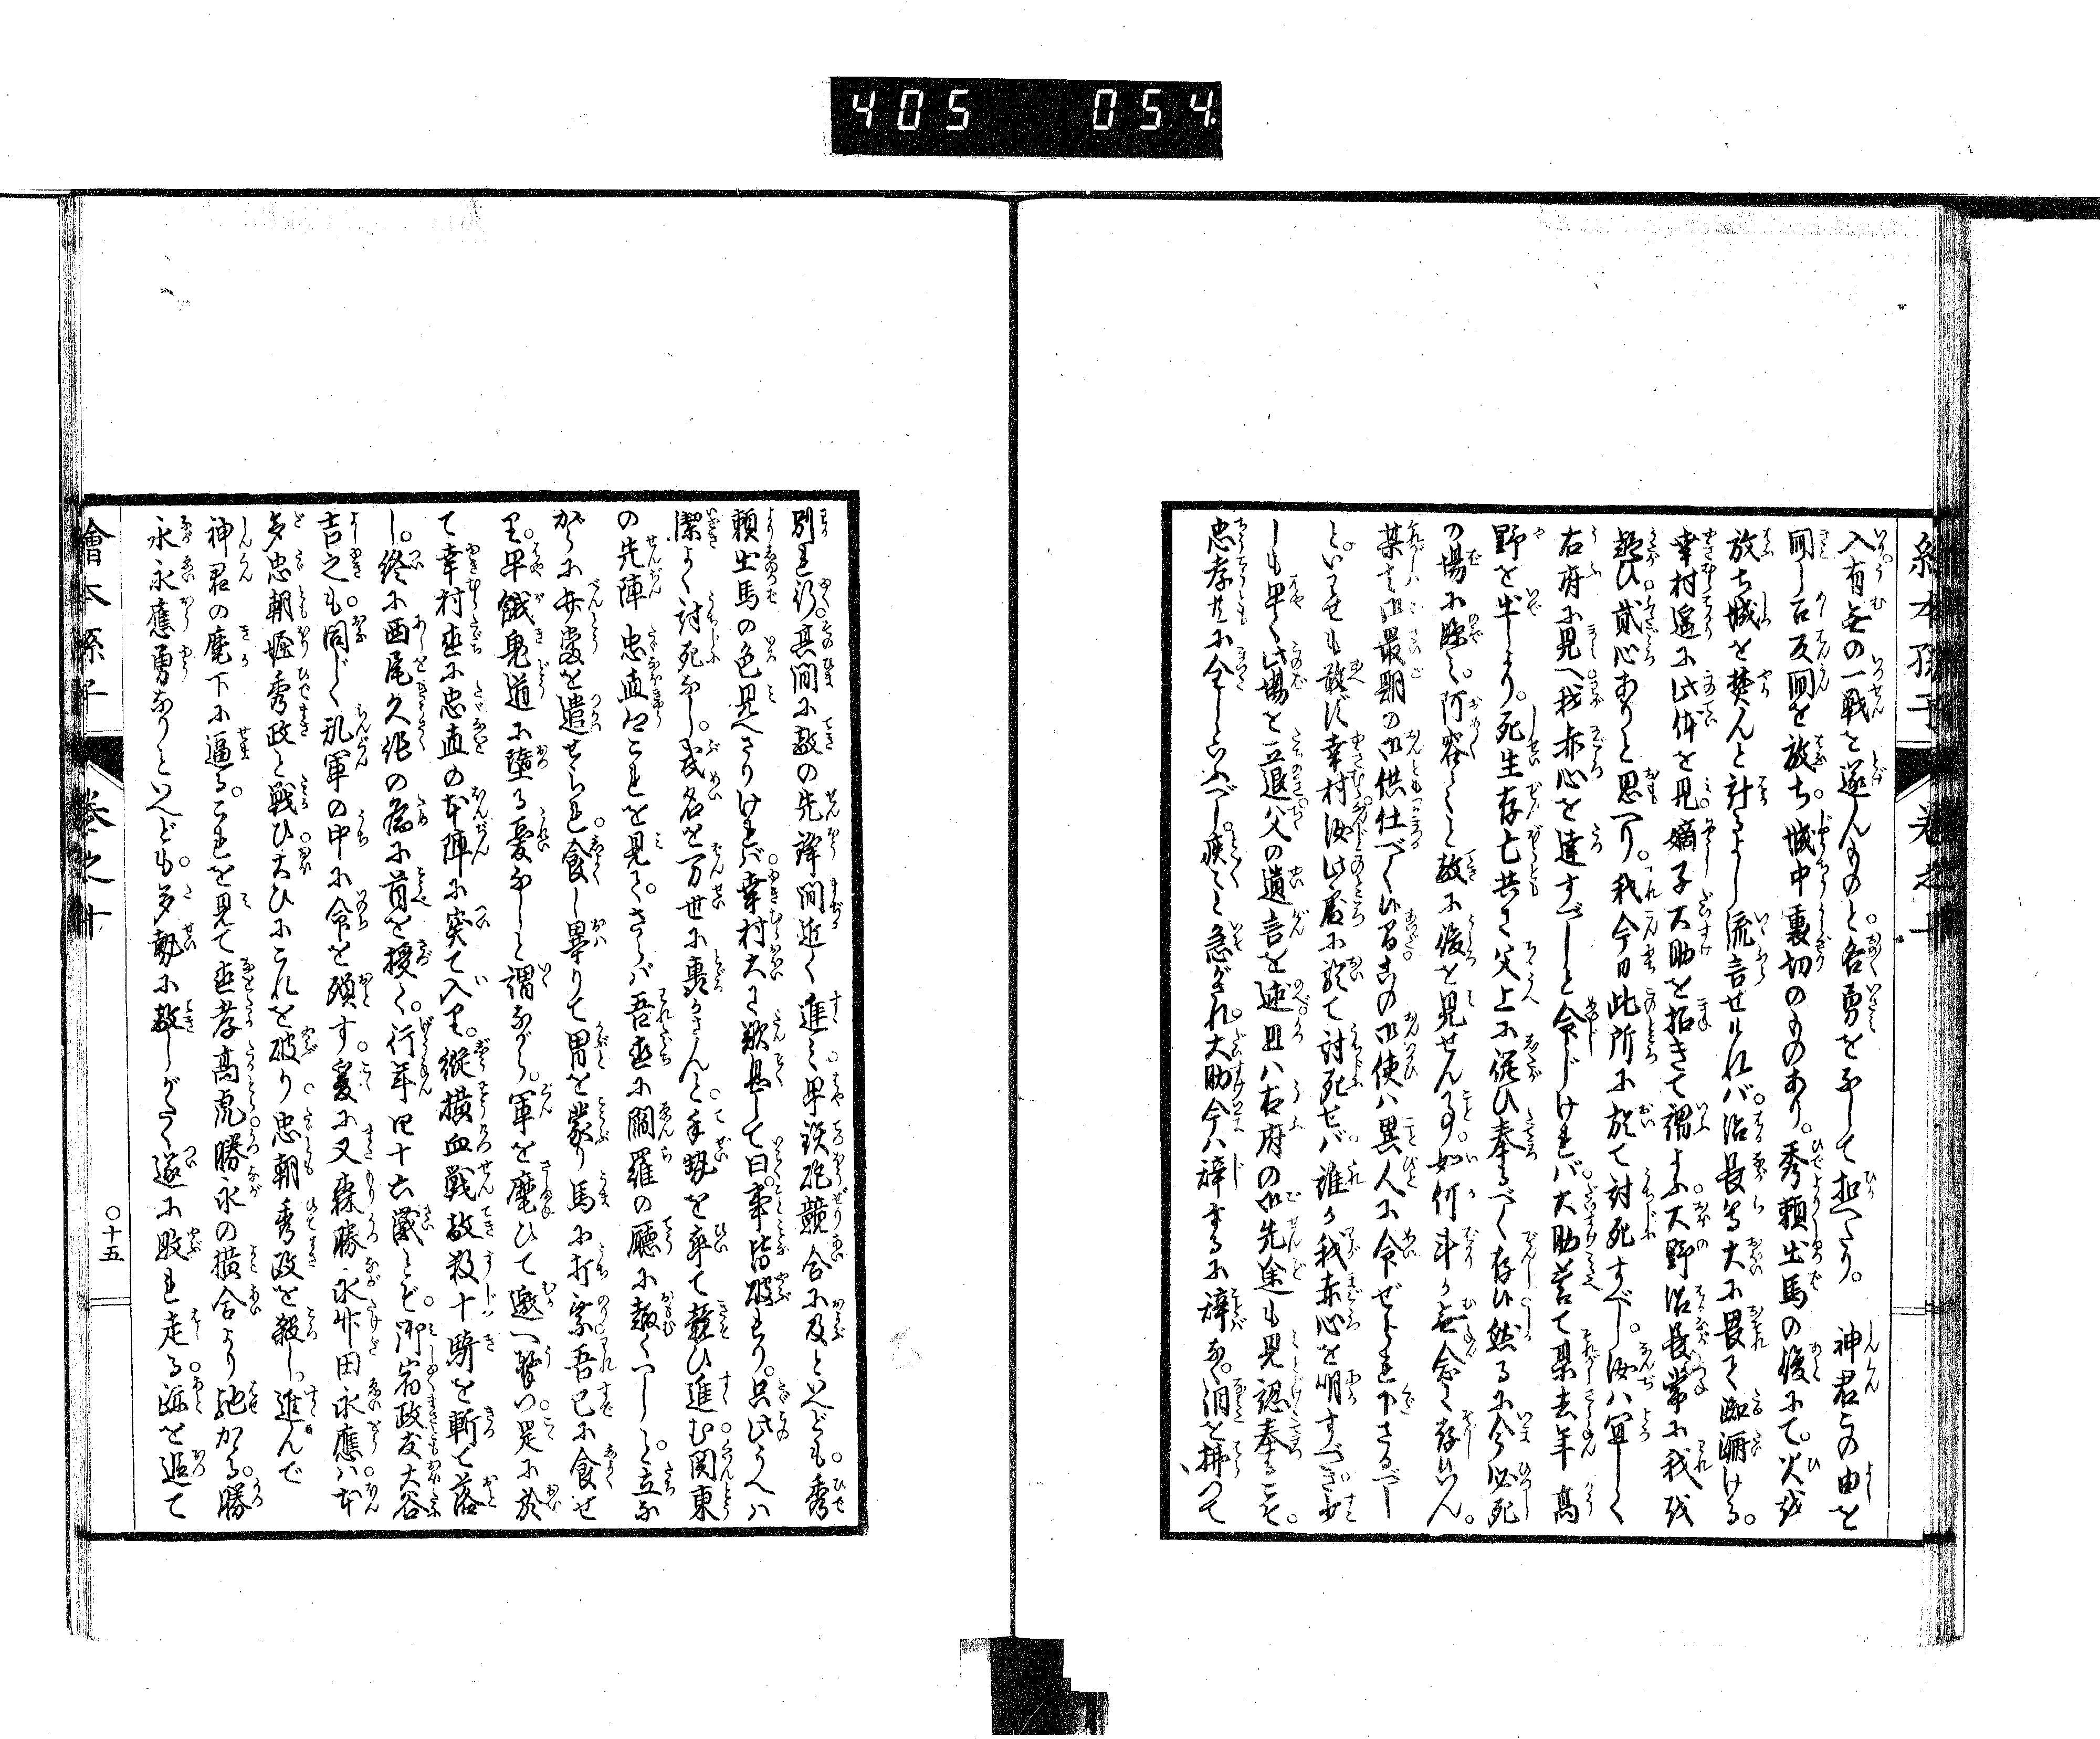 405 054
繪本孫子 卷之十
入有無の一戦を遂んものと。各勇をふして扣へたり。 神君この由を
聞し召反間を放ち。城中裏切のものあり。秀頼出馬の後にて。火を
放ち城を焚んと計るよし流言せければ。治長等大に畏て猶渊ける。
幸村遥に此体を見。嫡子大助を招きて謂ふ。大野治長常に我を
疑ひ。貳心ありと思へり。我今日此所に於て討死すべし。汝ハ冝しく
右府に見へ我赤心を達すべしと命じければ。大助答て某去年高
野を出しより。死生存亡共に父上に従ひ奉るべく存ひ然るに今必死
の場に臨ミ。阿容〳〵と敵に後を見せん事。如何斗か無念に存ひん。
某ハ御最期の御供仕べくひ間この御使ハ異人に命ぜられ下さるべし
といはせも敢ず。幸村汝此處に於て討死せば。誰か我赤心を明すべき。少
しも早く此場を立退父の遺言を述且ハ右府の御先途も見認奉るこそ。
忠孝共に全しといふべし。疾〳〵急がされ。大助今ハ辞するに辞なく。泪を拂つて
別れ行。其間に敵の先鋒間近く進ミ。早鉄砲競合に及といへども。秀
頼出馬の色見へざりければ。幸村大に歎息して曰。事皆破れり。只此うへハ
潔よく討死なし。武名を万世に轟かさんと。手勢を率て競ひ進む。関東
の先陣忠直卿これを見て。さらバ吾直に閻羅の廳に赴くべし。と立な
がらに弁當を遣せられ。食し畢りて冑を蒙り馬に打乗吾已に食せ
り。早餓鬼道に墮る憂なしと謂ながら。軍を麾ひて邀へ撃つ。是に於
て幸村直に忠直の本陣に突て入り。縦横血戦敵数十騎を斬て落
し。終に西尾久作の為に首を授く。行年四十六歳とぞ。御宿政友大谷
吉之も同じく乱軍の中に命を殞す。爰に又森勝永竹田永應ハ本
多忠朝堀秀政と戦ひ大ひにこれを破り。忠朝秀政を殺し。進んで
神君の麾下に逼る。これを見て直孝高虎勝永の横合より馳かる。勝
永永應勇なりといへども。多勢に敵しがたく遂に敗れ走る。跡を追て
繪本孫子 卷之十 〇十五